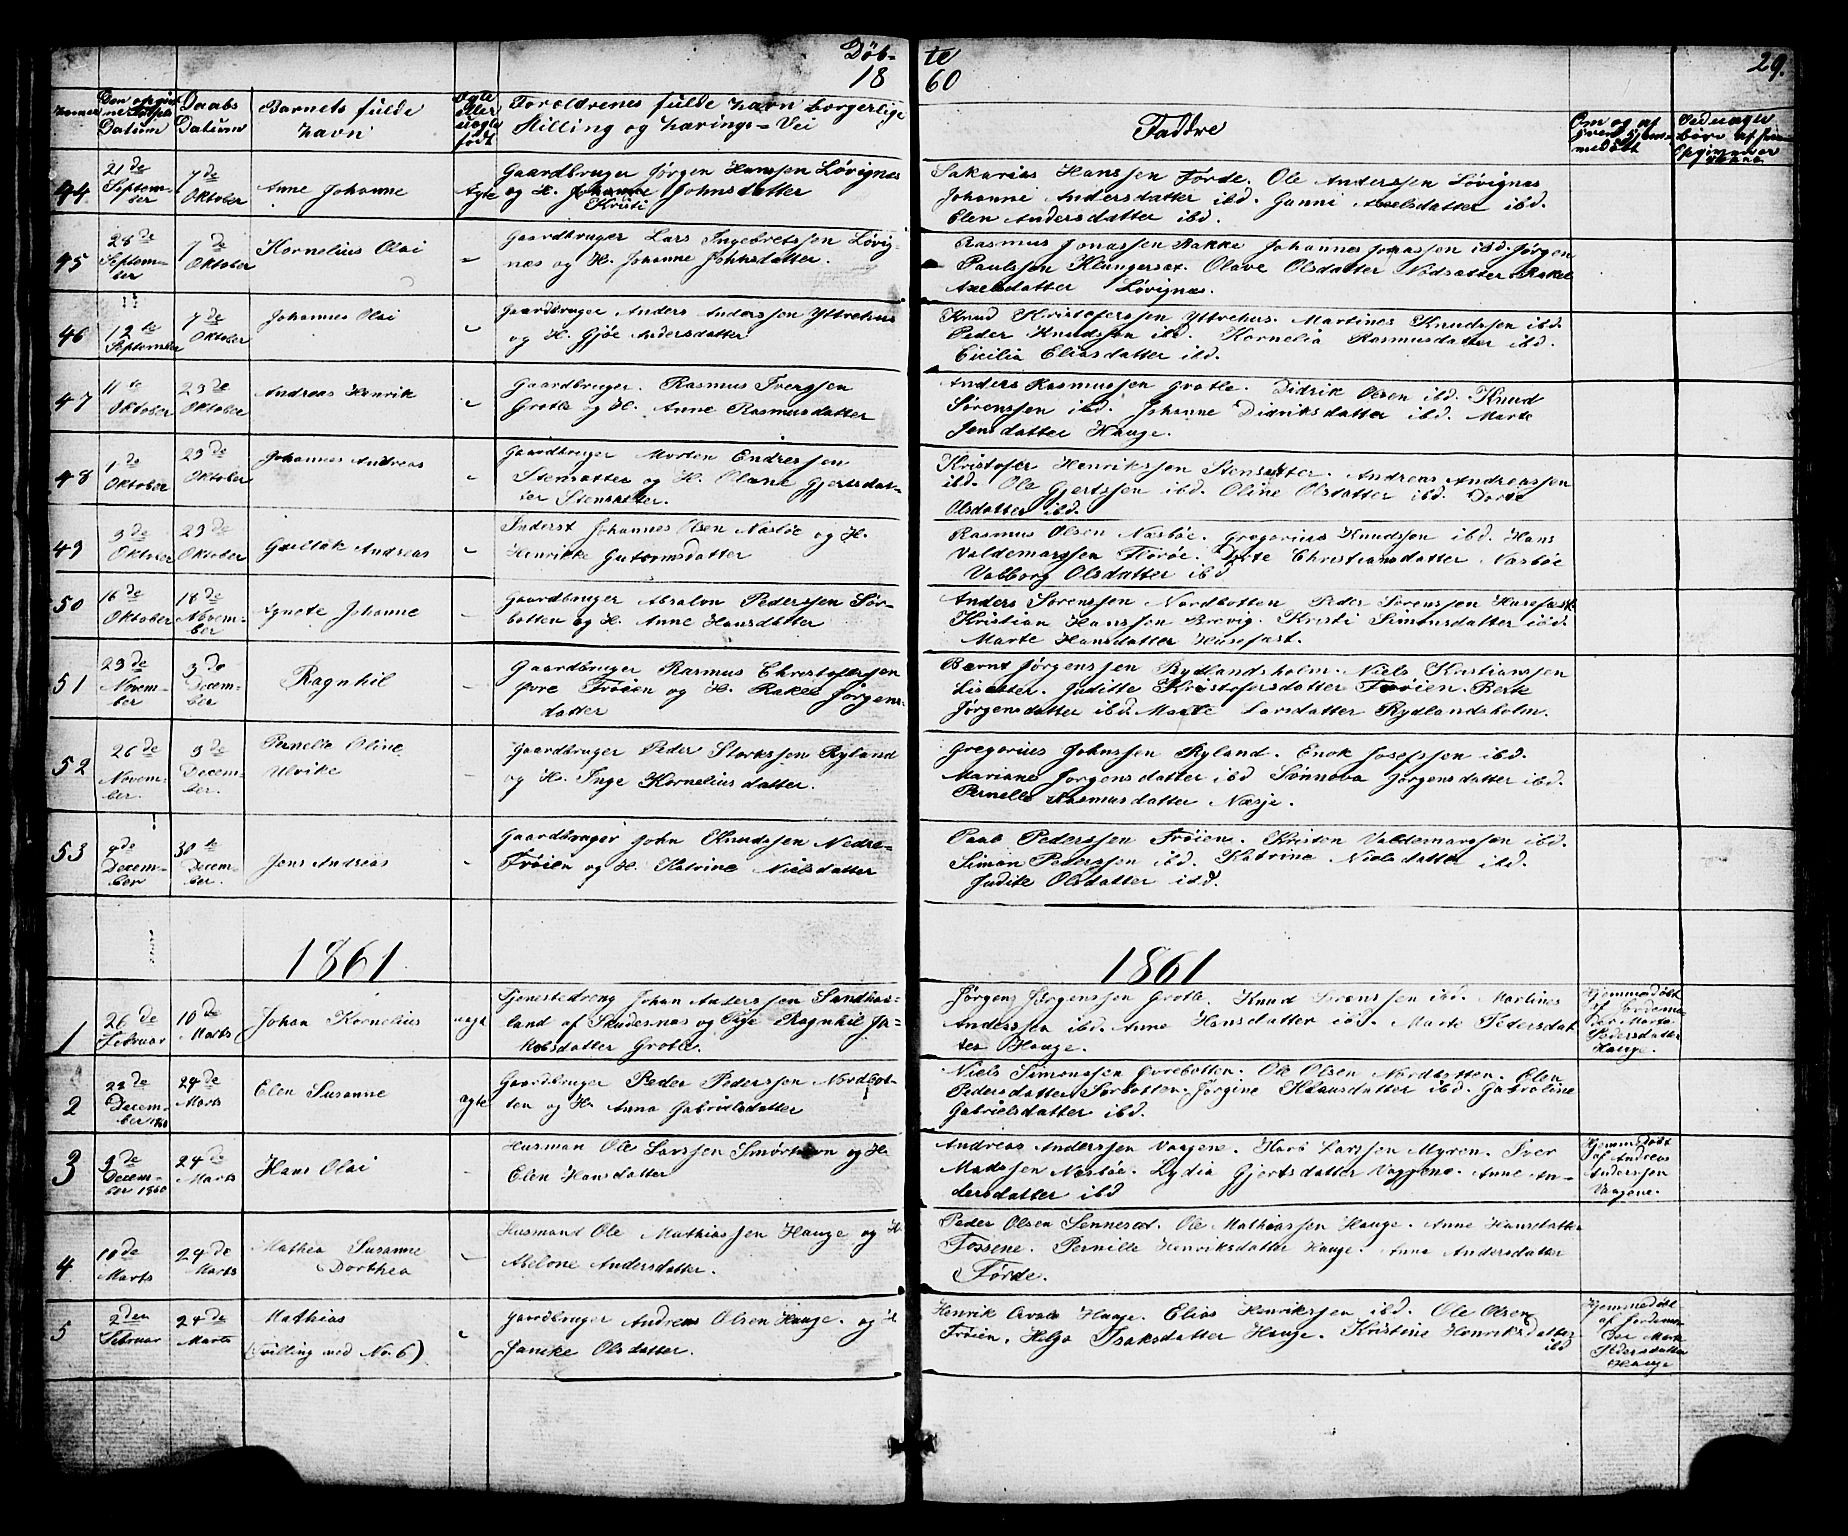 Døb-
te
18
60
29.
Daabs
Datum
Barnets fulde
Navn
Forældrenes fulde Navn borgerlige
Stilling og Nærings-Vei
Faddre
44
21de
Septem-
ber
7de
Oktober
Anne Johanne
Ægte
Gaardbruger Jørgen Hanssen Løvignæs
og H. Johanne Johnsdatter
Kristi
Sakarias Hanssen Førde. Ole Anderssen Løvignæs
Johanne Andersdatter ibd. Gunni Axelsdatter ibd.
Elen Andersdatter ibd.
45
Septem-
ber
7de
Oktober
Kornelius Olai
-
Gaardbruger Lars Ingebretssen Løvig-
næs og H. Johanne Johnsdatter.
Rasmus Jonassen Bakke Johannes Jonassen ibd. Jørgen
Paulssen Klungerset. Olave Olsdatter Rakel
Axelsdatter Løvignæs.
46
12te
September
7de
Oktober
Johannes Olai
-
Gaardbruger Anders Anderssen Yttrehus
og H. Gjøe Andersdatter
Knud Kristoferssen Yttrehus. Martines Knudssen ibd.
Peder Knudssen ibd. Kornelia Rasmusdatter ibd.
Cicilia Eliasdatter ibd.
47
11te
Oktober
23de
Oktober
Andreas Henrik
-
Gaardbruger Rasmus Iverssen
Grotle og H. Anne Rasmusdatter
Anders Rasmussen Grotle. Didrik Olsen ibd. Knud
Sørenssen ibd. Johanne Didriksdatter ibd. Marte
Jensdatter Hauge.
48
1de
Oktober
23de
Oktober
Johannes Andreas
-
Gaardbruger Morten Endressen
Stensætter og H. Olane Gjertsdat-
ter Stensætter.
Kristofer Henrikssen Stensætter. Andreas Andreassen
ibd. Ole Gjertssen ibd. Oline Olsdatter ibd. Dorte
Olsdatter ibd.
49
3de
Oktober
23de
Oktober
Andreas
-
Inderst Johannes Olsen Næsbøe og H.
Henrikke Guttormsdatter
Rasmus Olsen Næsbøe. Gregorius Knudssen ibd. Hans
Valdemarssen Florøe. Dorte Christiansdatter Næsbøe
Valborg Olsdatter ibd
50
16de
Oktober
18de
Novem-
ber
Agnete Johanne
-
Gaardbruger Absalon Pederssen Sør-
botten og H. Anne Hansdatter
Anders Sørenssen Nordbotten Peder Sørenssen Husefast
Kristian Hanssen Brevig. Kristi Simonsdatter ibid.
Marte Hansdatter Husefast.
51
23de
Novem-
ber
3de
Decem-
ber
Ragnhil
-
Gaardbruger Rasmus Christofferssen
øvre Frøien og H. Rakel Jørgens-
datter
Bernt Jørgenssen Rydlandsholm. Niels Kristianssen
Lisæter. Juditte Kristofersdatter Frøien.
Jørgensdatter ibd. Marte Larsdatter Rydlandsholm.
52
26de
Novem-
ber
3de
Decem-
ber.
Pernella Oline
Ulrike
-
Gaardbruger Peder Storkssen Ryland
og H. Inge Kornelius datter.
Gregorius Johnssen Ryland. Enok Josefssen ibd.
Mariane Jørgensdatter ibd Sønnova Jørgensdatter ibd.
Pernelle Rasmusdatter Næsje.
53
4de
Decem-
ber
30te
Decem-
ber.
Jens Andreas
-
Gaardbruger John Knudssen Nedre-
Frøien og H. Katrine Nielsdatter
Paul Pederssen Frøien. Kristen Valdemarssen ibd.
Simon Pederssen ibd. Katrina Nielsdatter ibd.
Judite Olsdatter ibd.
1861
1861
1
26de
Februar
10de
Marts
Johan Kornelius
uægt
Tjenestedreng Johan Anderssen Sandhas-
land af Skudesnæs og Pige Ragnhil Ja-
kobsdatter Grotle.
Jørgen Jørgenssen Grotle. Knud Sørenssen ibd. Martines
Anderssen ibd. Anne Hansdatter ibd. Marte Pedersdat
ter Hauge.
Hjemmedøbt
af Jordemo
der Marte
Pedersdatter
Hauge.
2
22de
Decem-
ber 1860
24de
Marts
Elen Susanne
ægte
Gaardbruger Peder Pederssen Nordbot-
ten og H. Anna Gabrielsdatter
Niels Simonssen Øvrebotten. Ole Olsen Nordbotten. Elen
Pedersdatter Sørbotten. Jørgine Klausdatter ibd. Gabroline
Gabrielsdatter ibd.
3
9de
Decem-
ber 1860
24de
Marts
Hans Olai
-
Husman Ole Larssen Smørhavn og H.
Elen Hansdatter
Andreas Anderssen Vaagene. Hans Larssen Myren. Iver
Madssen Næsbøe. Lydia Gjertsdatter Vaagene. Anne An-
dersdatter ibd
Hjemmedøbt
af Andreas
Anderssen
Vaagene.
4
10de
Marts
24de
Marts
Mathea Susanne
Dorthea
-
Husmand Ole Mathiassen Hauge og H
Abelone Andersdatter.
Peder Olsen Sennesæt. Ole Mathiassen Hauge. Anne Hansdatter
Fossene. Pernille Henriksdatter Hauge. Anna Andersdatter
Førde.
5
2den
Februar
24de
Marts
Mathias
(Tvilling med No. 6)
-
Gaardbruger Andreas Olsen Hauge. og H
Janike Olsdatter.
Henrik Hauge. Elias Henrikssen ibd. Ole Olsen
Frøien. Helga Isaksdatter Hauge. Kristine Henriksdatter
ibd
Hjemmedøbt
af Jordemo
der Marte
Pedersdatter
Hauge